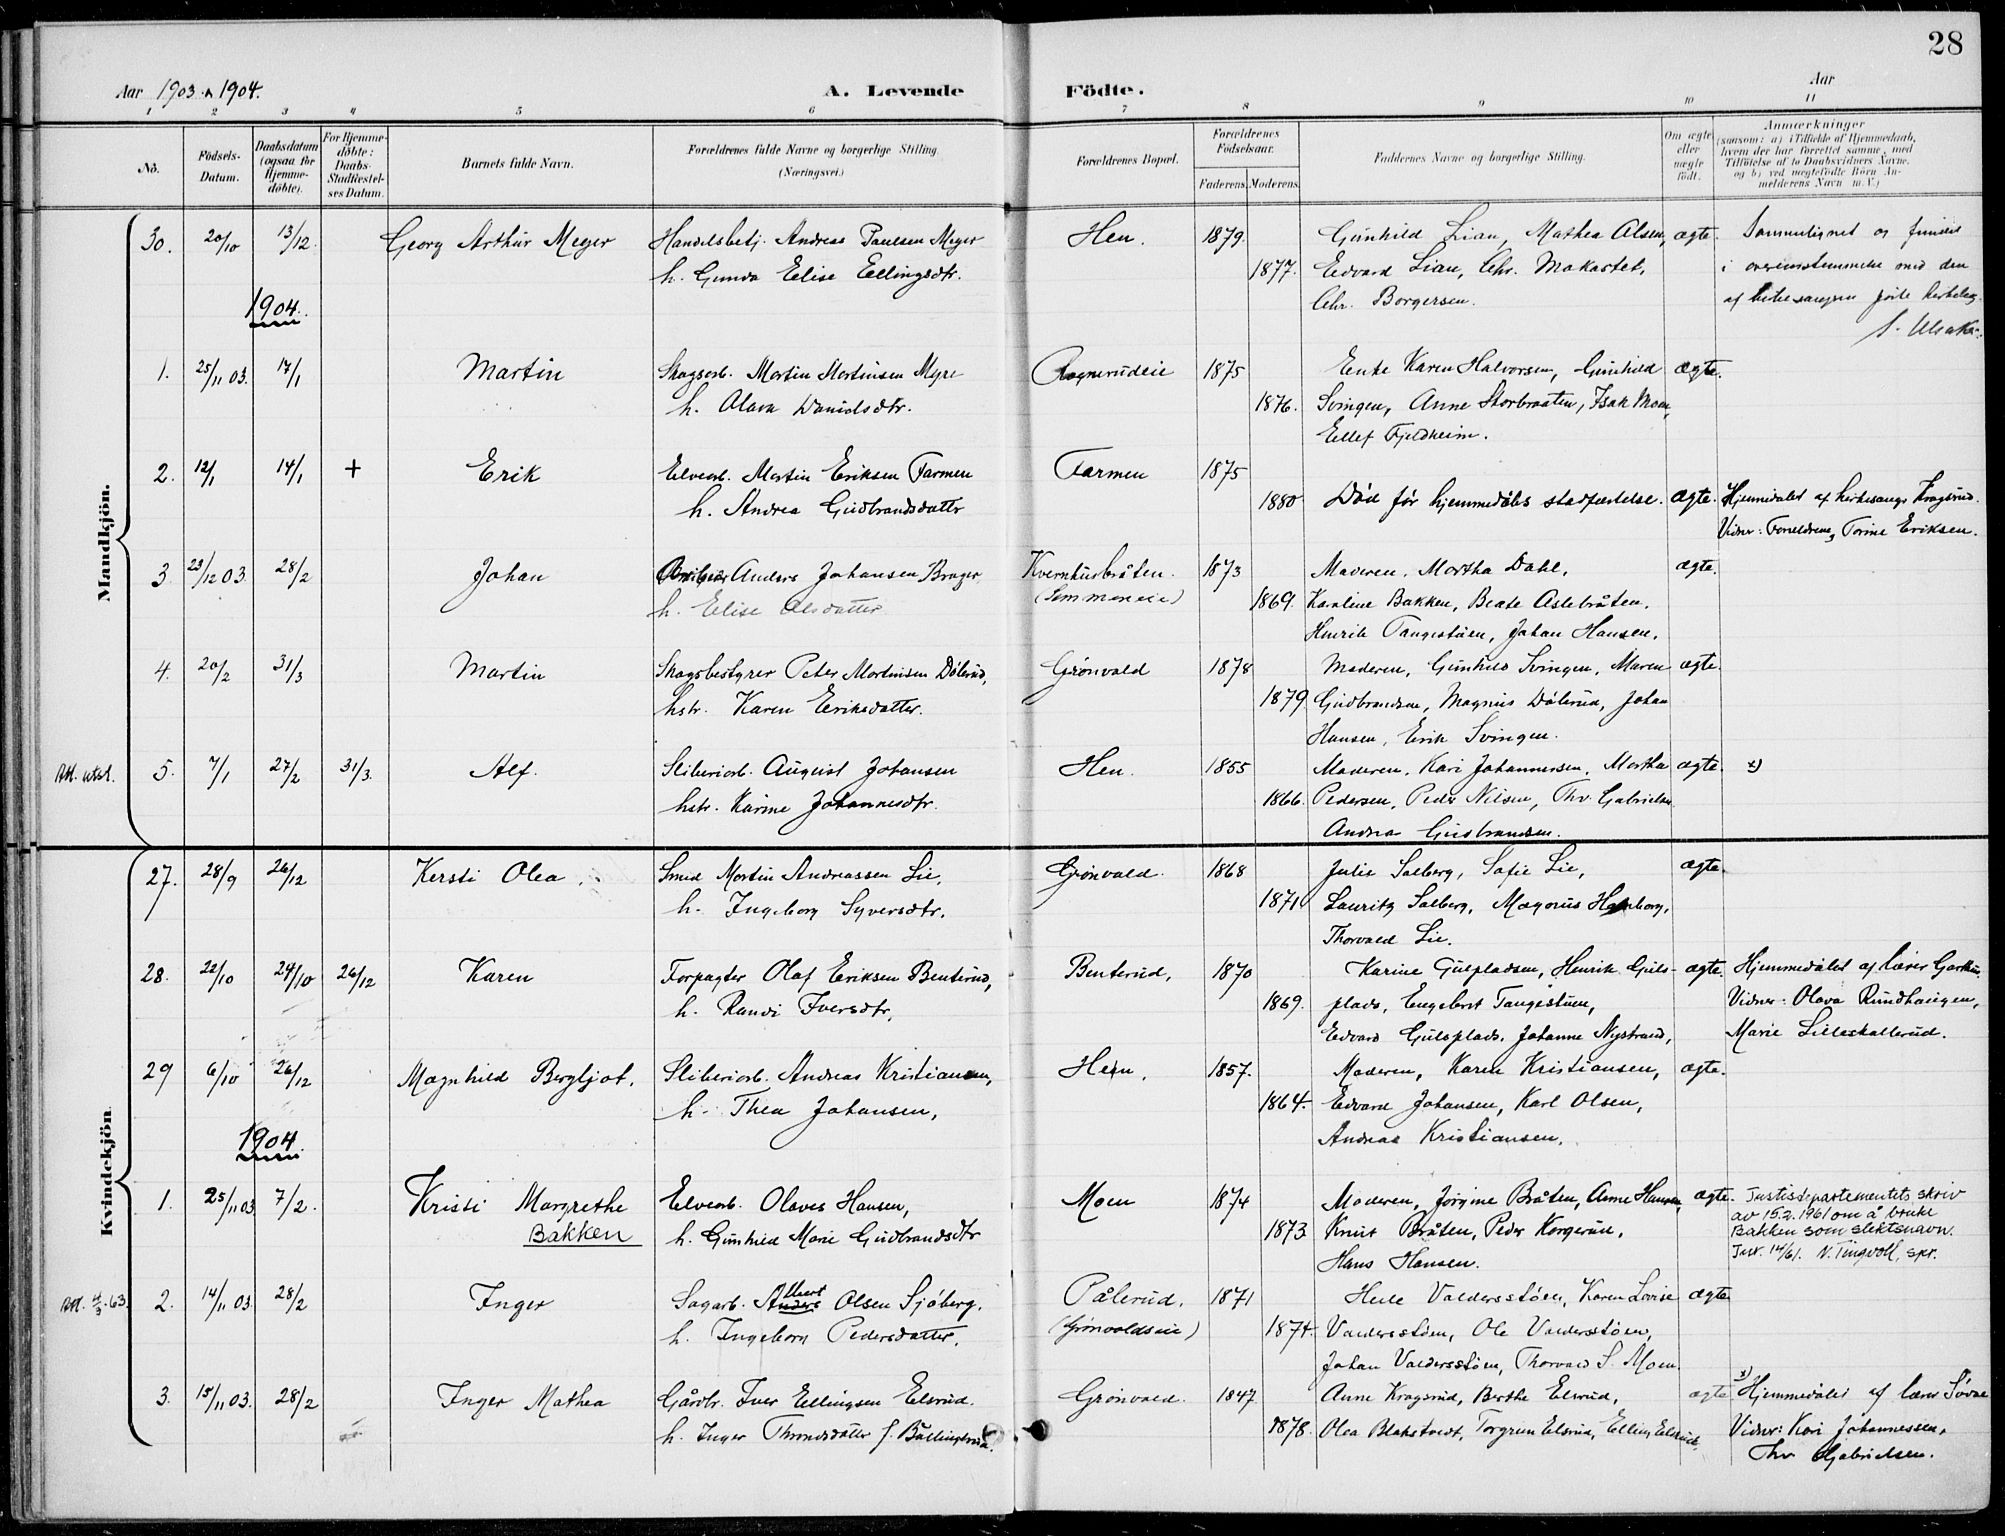 28
Aar 1903 & 1904.
A. Levende Födte.
Aar
1 2 3 4 5 6 7 8 9 10 11
No.
Födsels-Datum.
Daabsdatum (ogsaa for Hjemmedöbte).
For Hjemmedöbte: Daabs-Stadfæstelses Datum.
Barnets fulde Navn.
Forældrenes fulde Navne og borgerlige Stilling. (Næringsvei.)
Forældrenes Bopæl.
Forældrenes Födselsaar.
Faderens. Moderens.
Faddernes Navne og borgerlige Stilling.
Om ægte eller uægte födt.
Anmærkninger
(saasom: a) i Tilfælde af Hjemmedaab, hvem der har forrettet samme, med Tilföielse af to Daabsvidners Navne. og b) ved uægtefödte Börn Anmelderens Navn m. V.)
Mandkjön.
30. 20/10 13/12 Georg Arthur Meyer Handelsbetj. Andreas Paulsen Meyer Hen. 1879. Gunhild Lian, Mathea Olsen, ægte. Sammenlignet og funnet
h. Gunda Elise Ellingsdtr. 1877. Edvard Lian, Chr. Makastet, i overensstemmelse med den
Chr. Borgersen. af kirkesangeren førte kirkebog.
1904.
1. 25/11 03. 17/1 Martin Skogsarb. Martin Martinsen Myre Rognerudeie 1875 Enke Karen Halvorsen, Gunhild ægte.
h. Olava Danielsdtr. 1876. Svingen, Anne Storbraaten, Isak Moen,
Ellef Fjeldheim.
2. 12/1 14/1 + Erik Elvearb. Martin Eriksen Farmen Farmen 1875
h. Andrea Gudbrandsdatter 1880 Död för hjemmedåbs stadfæstelse. ægte. Hjemmedøbt af kirkesanger Kragsrud.
Vidner: Forældrene, Torine Eriksen.
3 23/12 03. 28/2 Johan Anders Johansen Brager Kvernhusbråten. 1873 Moderen, Martha Dahl, ægte.
h. Elise Olsdatter (Semmeneie) 1869. Karoline Bakken, Beate Aslebråten,
Henrik Tangestøen, Johan Hansen.
4. 20/2 31/3 Martin Skogsbestyrer Peter Martinsen Dölerud, Grönvold 1878 Moderen, Gunhild Svingen, Maren ægte.
hstr. Karen Eriksdatter. 1879 Gudbrandsen, Magnus Dölerud, Johan
Hansen, Erik Svingen.
5. 7/1 27/2 31/3. Alf. Sliberiarb. August Johansen Hen. 1855 Moderen, Kari Johannessen, Martha ægte. x)
hstr. Karine Johannesdtr. 1866. Pedersen, Peder Nilsen, Thv. Gabrielsen
Andrea Gudbrandsen.
Kvindekjön.
27. 28/9 26/12 Kersti Olea. Smed Martin Andreassen Lie, Grönvold. 1868 Julie Solberg, Sofie Lie, ægte.
h. Ingeborg Syversdtr. 1871 Lauritz Solberg, Magnus Hamborg,
Thorvald Lie.
28. 22/10 24/10 26/12 Karen Forpagter Olaf Eriksen Benterud, Benterud, 1870 Karine Gulpladsen, Henrik Guls- ægte. Hjemmedøbt af lærer
h. Randi Iversdtr. 1869. plads, Engebret Tangestuen, Vidner: Olava Rundhaugen,
Edvard Gulsplads, Johanne Nystrand, Marie Lilleskallerud.
29 6/10 26/12 Magnhild Bergljot. Sliberiarb. Andreas Kristiansen, Hen. 1857. Moderen, Karen Kristiansen, ægte.
h. Thea Johansen, 1864. Edvard Johansen, Karl Olsen,
Andreas Kristiansen.
1904.
1. 25/11 03 7/2. Kristi Margrethe Elvearb. Olaves Hansen, Moen 1874 Moderen, Jörgine Bråten, Anne Hansen, ægte. Justisdepartementets skriv
Bakken h. Gunhild Marie Gudbrandsdtr 1873 Knut Bråten, Peder Korgerud, av 15.2.1961 om å bruke
Hans Hansen. Bakken som slektsnavn.
Jnr. 14/61. N. Tingvoll, spr.
2. 14/11 03. 28/2 Inger Sagarb. Anders Olsen Sjöberg. Pålerud. 1871 Helle Valdersstöen, Karen Lovise ægte
h. Ingeborg Pedersdatter. (Grönvoldseie) 1874. Valdersstöen, Ole Valdersstöen,
Johan Valdersstöen, Thorvald S. Moen.
3. 15/11 03. 28/2 Inger Mathea Gårdbr. Iver Ellingsen Elsrud. Grönvold. 1847 Anne Kragsrud, Berthe Elsrud, ægte x) Hjemmedøbt af lærer
h. Inger Throndsdatter f. 1878. Olea Blakstvedt, Torgrim Elsrud, Elling Elsrud. Vidner: Kari Johannessen,
Thv Gabrielsen.